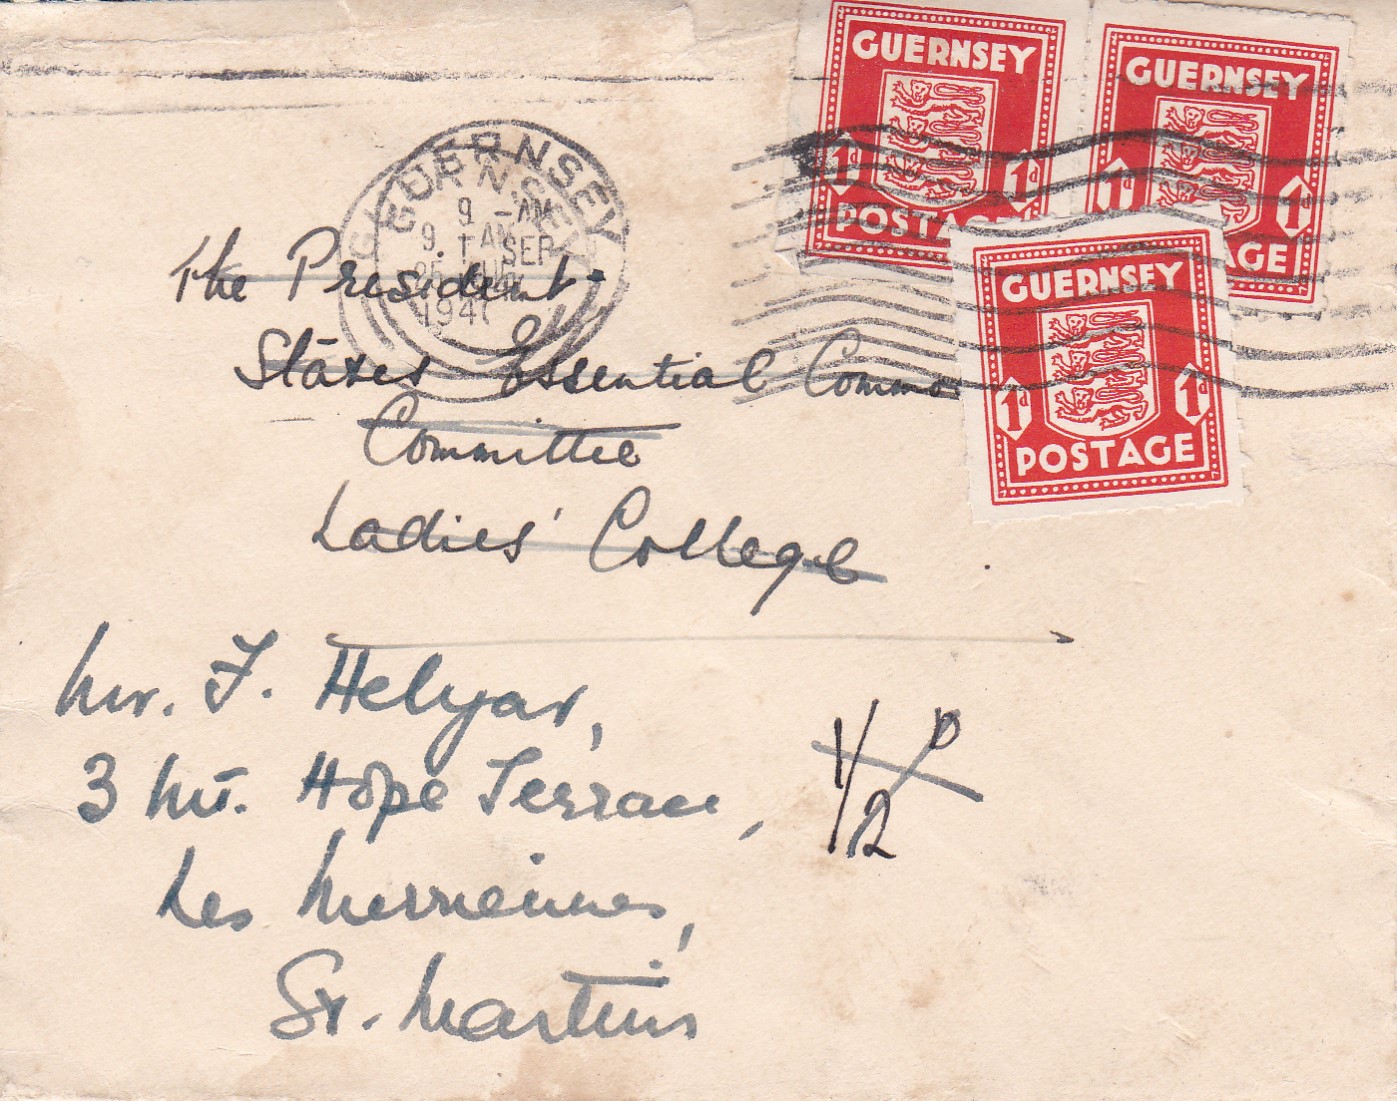 GUERNSEY
1d 1d
POSTAGE
GUERNSEY
1d 1d
POSTAGE
GUERNSEY
1d 1d
POSTAGE
GUERNSEY
GUERNSEY
9 - AM
9. AM
1 SEP
194
The President
States Essential Commo
Committee
Ladies' College
Mr. F. Helyar,
3 Mt. Hope Terrace,
Les Merriennes,
St. Martins
1/2 D